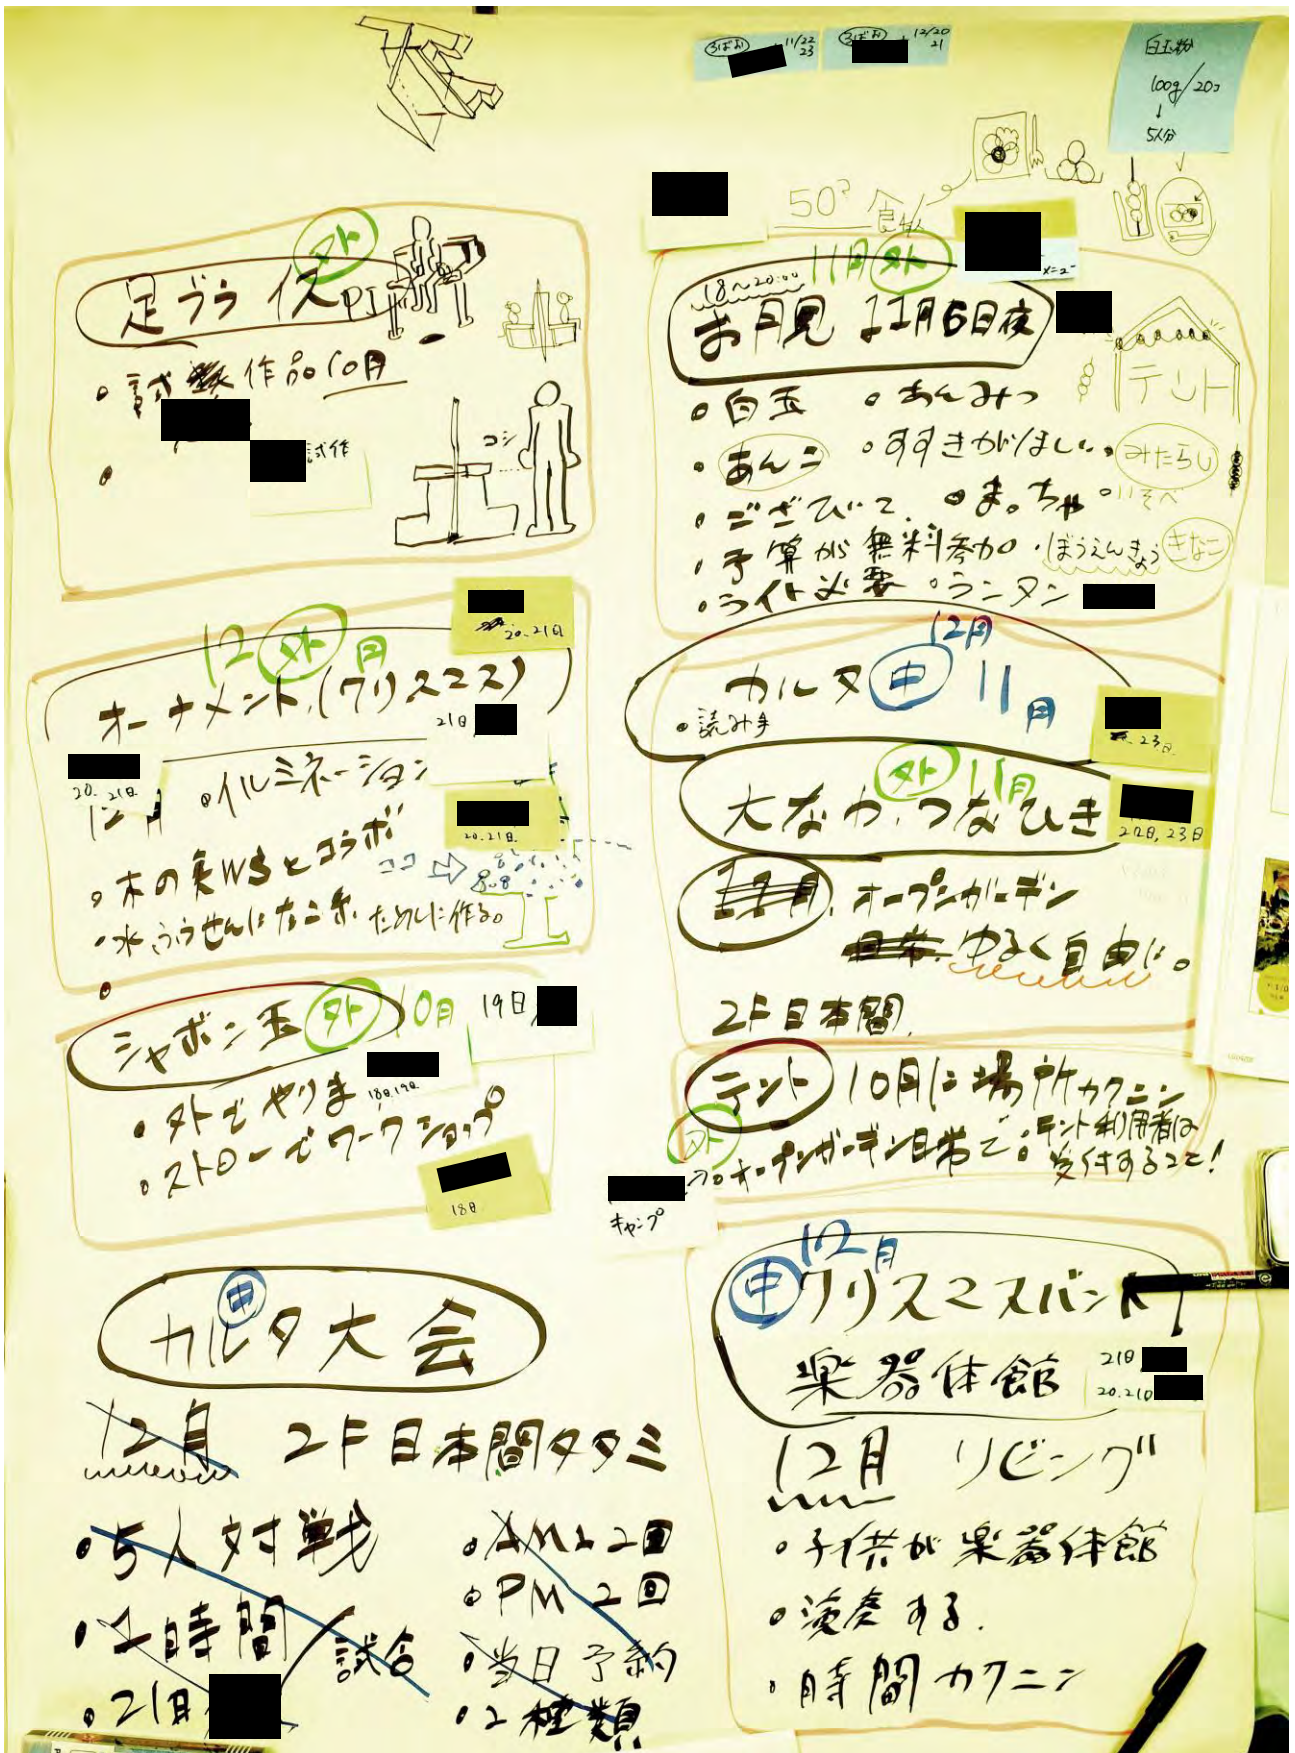 11/22
23
12/20
21
白玉粉
100g/20コ
↓
5人分
50?食
外
足ブライス
試 作品10月
試作
コシ
11月 外
メニュー
18〜20:00
お月見 11月6日夜
テント
白玉
あんみつ
あんこ
すすきがほしい
みたらし
ござひいて、
まっちゃ
いそべ
予算が無料参加
ぼうえんきょう
きなこ
ライト必要
ランタン
20.21日
12月 外
オーナメント(クリスマス)
21日
20.21日
12月
イルミネーション
20.21日
木の実WSとコラボ
ココ
水ふうせんにたこ糸、ためしに作る。
12月
カルタ 中 11月
読み手
23日
外 11月
大なわ、つなひき
22日,23日
12月 オープンガーデン
日常 ゆるく自由に。
2F日本間
シャボン玉 外 10月
19日
外でやりま
18日19日
ストローでワークショップ
18日
テント 10月に場所カクニン
外
オープンガーデン日常で
テント利用者は
受付すること!
キャンプ
中
カルタ大会
12月 2F日本間タタミ
5人対戦
1時間
試合
21日
AM 2回
PM 2回
当日予約
2種類
12月
中 クリスマスバンド
楽器体館
21日
20.21日
12月 リビング
子供が楽器体館
演奏する.
時間カクニン